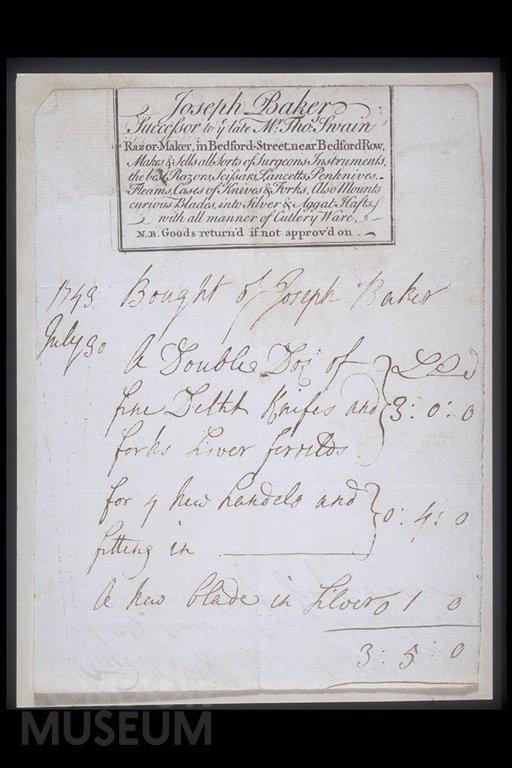 Joseph Baker
Successor to yͤ late Mͬ Thoˢ Swain
Razor-Maker, in Bedford-Street, near Bedford Row,
Makes & Sells all Sorts of Surgeons Instruments,
the best Razors, Scissars, Lancetts, Penknives,
Fleams, Cases of Knives & Forks, Also Mounts
curious Blades, into Silver & Aggat Hafts,
with all manner of Cutlery Ware.
N.B. Goods return'd if not approv'd on
1743 Bought of Joseph Baker
July 30
A Double Doz of
fine Knifes and 3:0:0
forks Silver
for 4 new handels and
fitting in 0:4:0
A new blade in Silver 0 1 0
3:5:0
MUSEUM